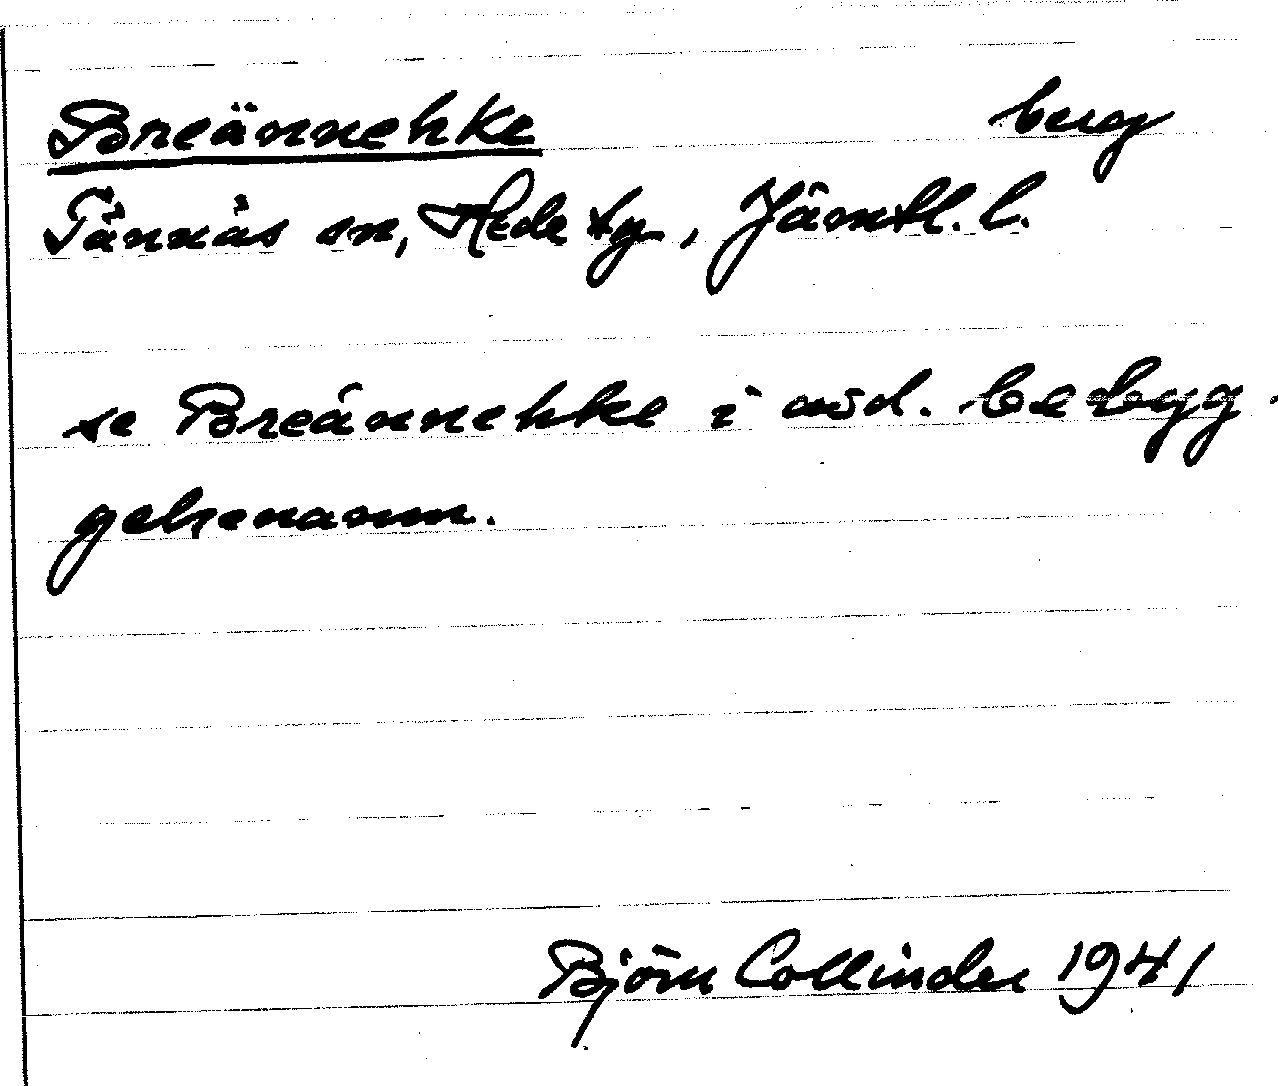 Breännehke berg
Tännäs sn, Hede tg., Jämtl. l.
se Breännehke i avd. bebyg-
gelsenamn.
Björn Collinder 1941